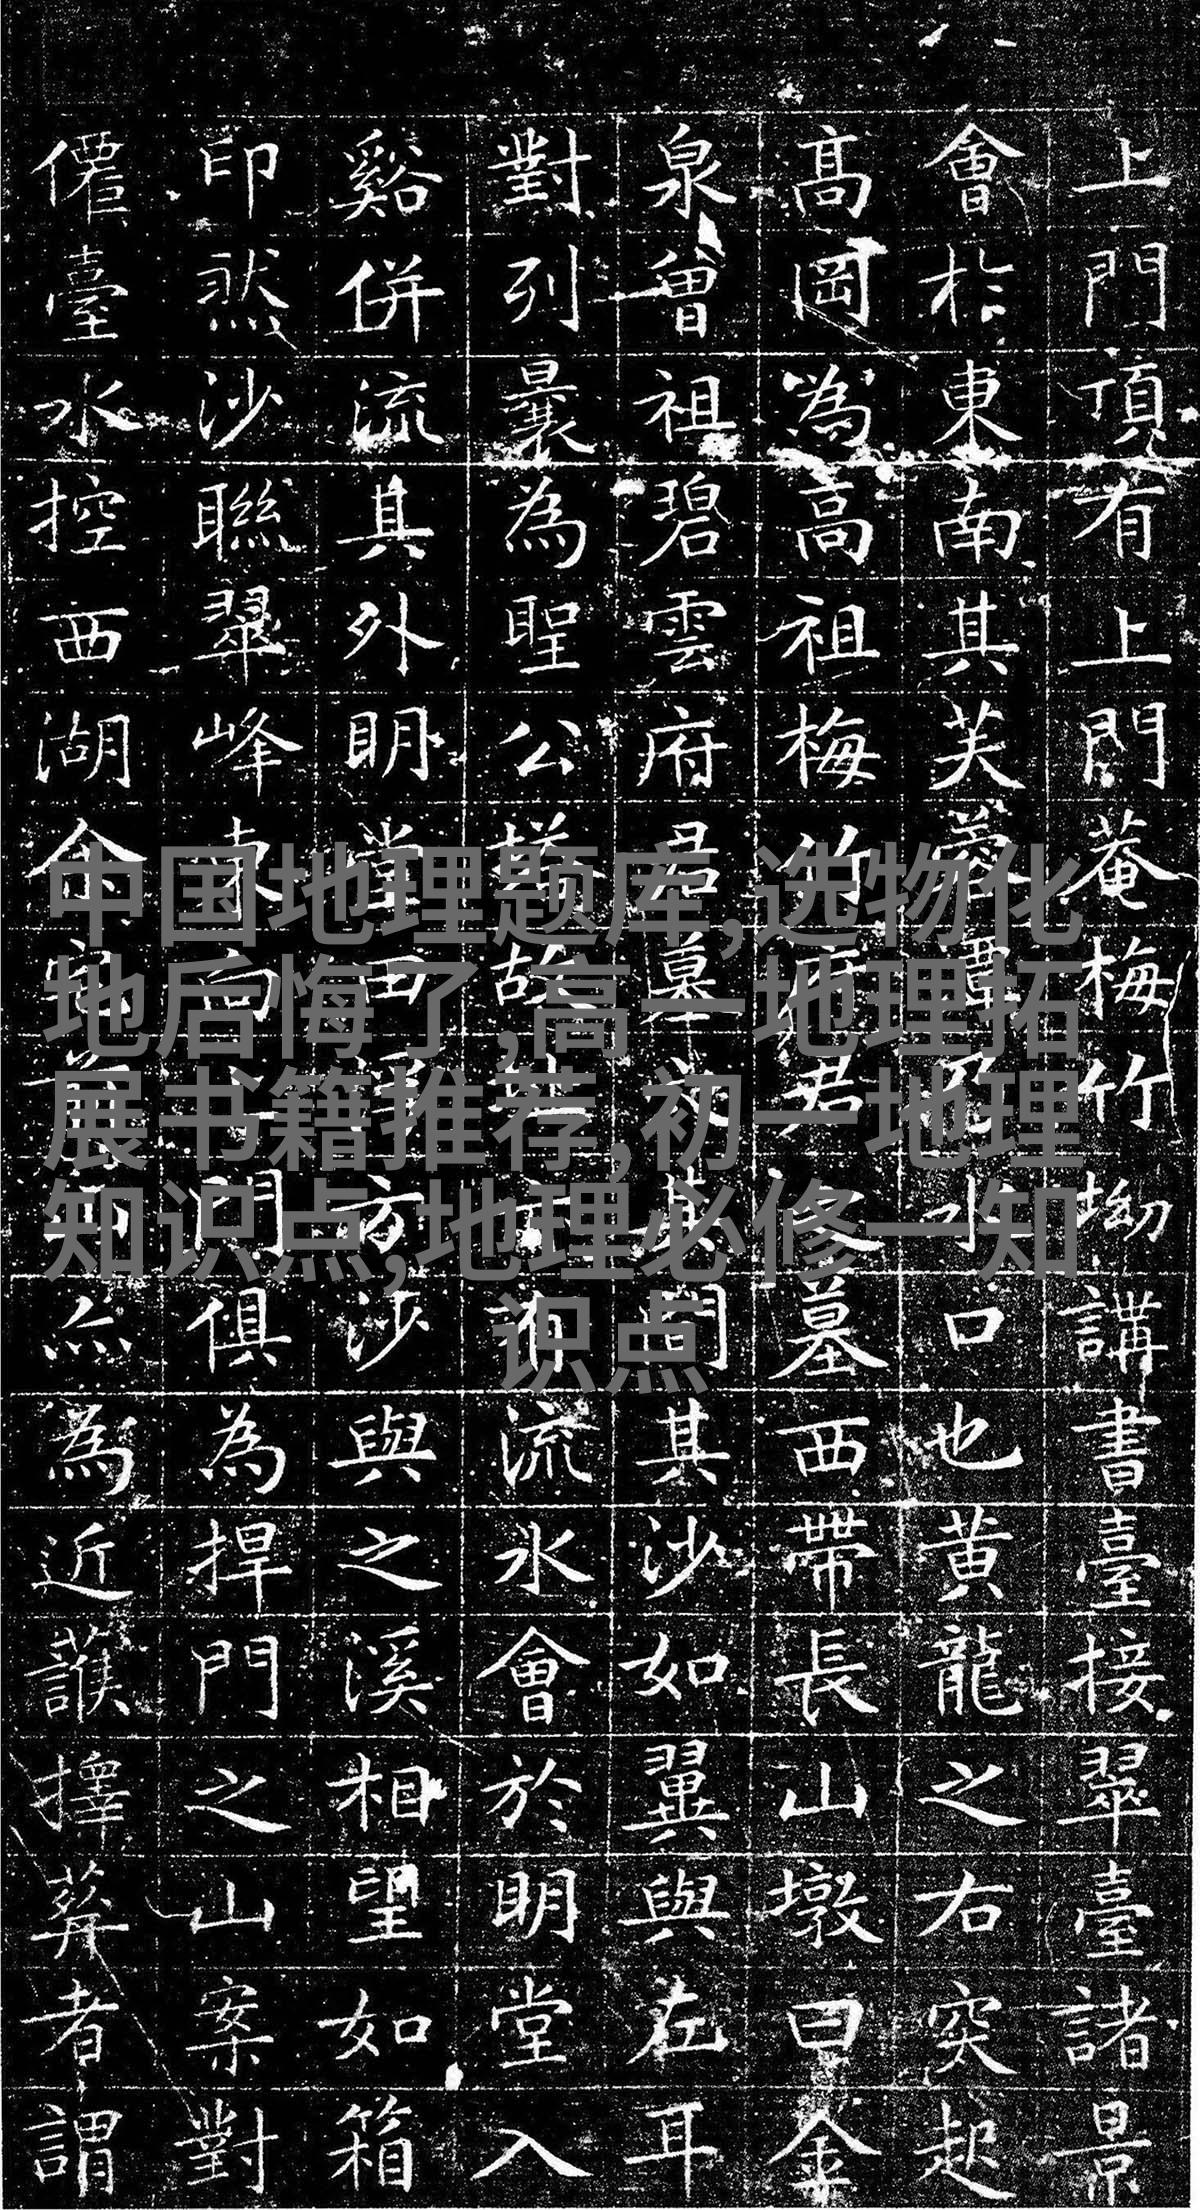 上門頂有上門菴梅竹坳講書臺接翠臺諸景
會扵東南其芙蓉水口也黄龍之右突起
髙岡為高祖梅竹府君墓西帶長山墩曰金
泉曾祖碧雲府君墓其間其沙如翼與左耳
對列曩為聖公塔故流水會於明堂入
谿併流其外明堂田方沙與之溪相望如箱
印然沙聯翠峰東向門俱為捍門之山案對
僊臺水控西湖余為近擇葬者謂
中国地理题库,选物化
地后悔了,高一地理拓
展书籍推荐,初一地理
知识点,地理必修一知
识点